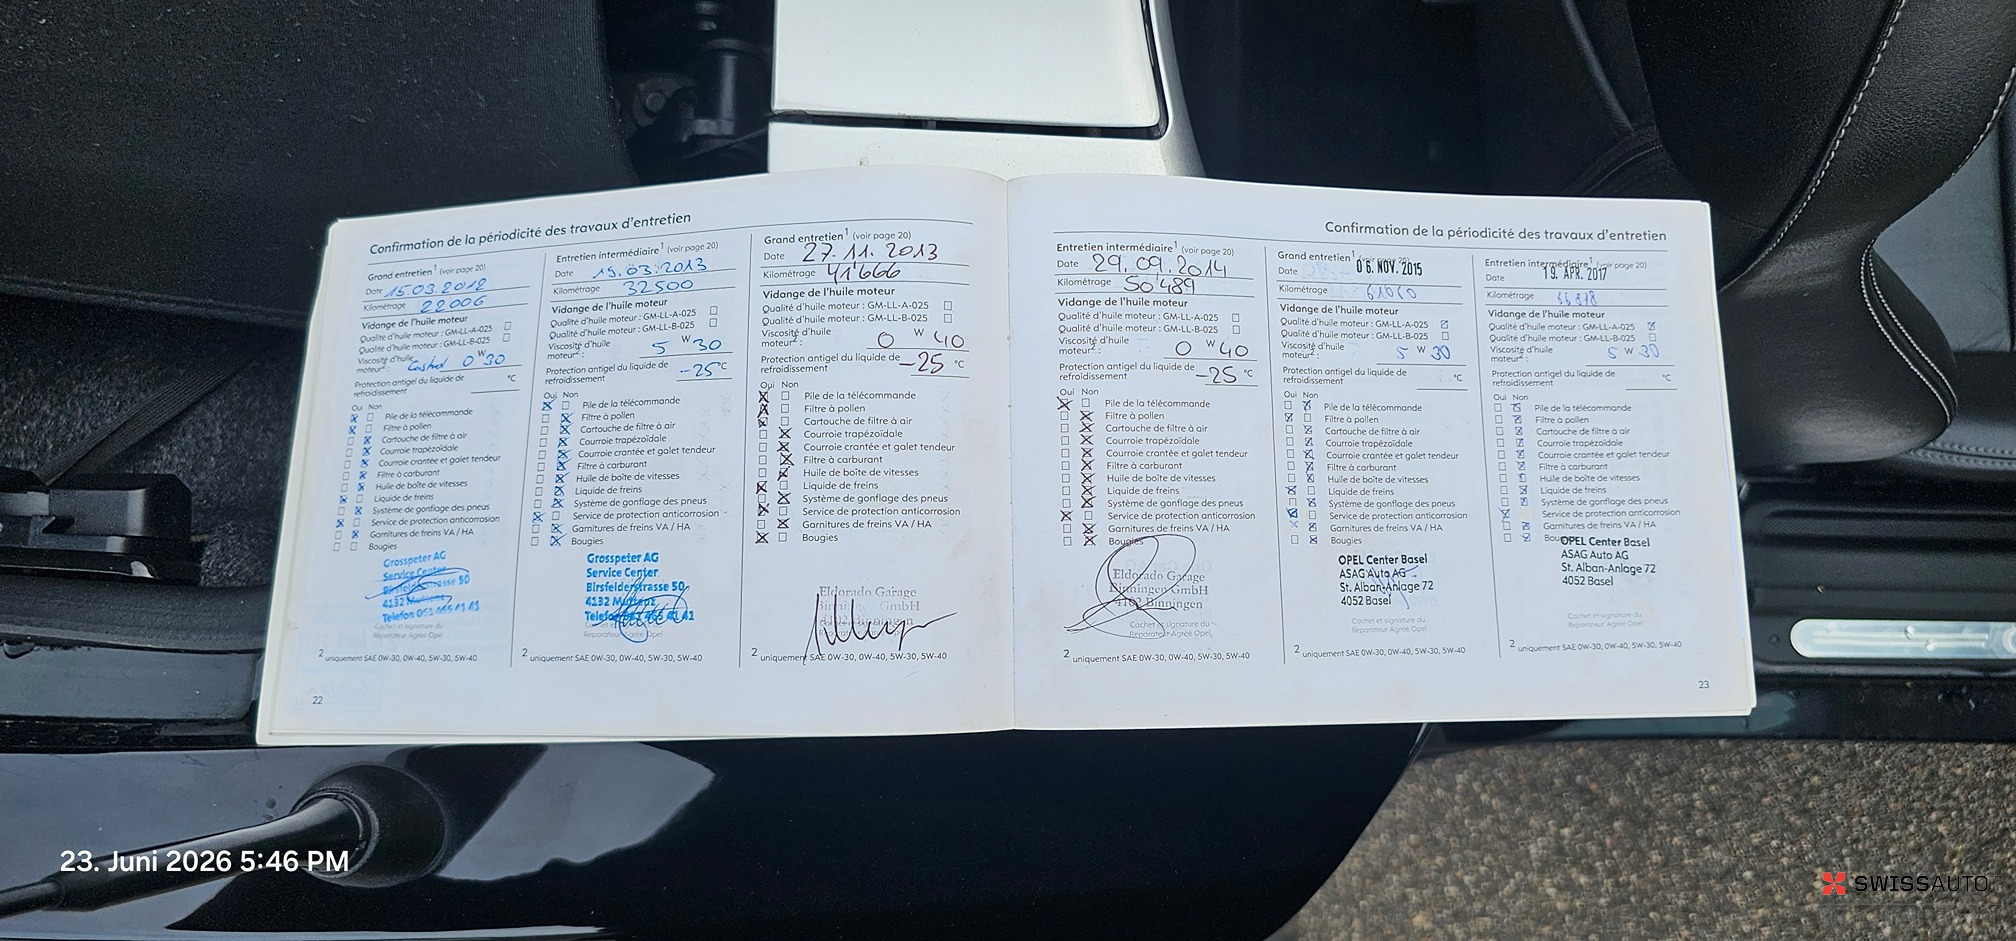 Confirmation de la périodicité des travaux d'entretien
Grand entretien¹ (voir page 20)
Date 15.03.2012
Kilométrage 22006
Vidange de l'huile moteur
Qualité d'huile moteur : GM-LL-A-025
Qualité d'huile moteur : GM-LL-B-025
Viscosité d'huile
moteur² : Castrol 0 W 30
Protection antigel du liquide de
refroidissement °C
Oui Non
Pile de la télécommande
Filtre à pollen
Cartouche de filtre à air
Courroie trapézoïdale
Courroie crantée et galet tendeur
Filtre à carburant
Huile de boîte de vitesses
Liquide de freins
Système de gonflage des pneus
Service de protection anticorrosion
Garnitures de freins VA / HA
Bougies
Grosspeter AG
Service Center
Birsfelderstrasse 50
4132 Muttenz
Telefon 061 465 41 41
Cachet et signature du
Reparateur Agréé Opel
² uniquement SAE 0W-30, 0W-40, 5W-30, 5W-40
22
Entretien intermédiaire¹ (voir page 20)
Date 15.03.2013
Kilométrage 32500
Vidange de l'huile moteur
Qualité d'huile moteur : GM-LL-A-025
Qualité d'huile moteur : GM-LL-B-025
Viscosité d'huile
moteur² : 5 W 30
Protection antigel du liquide de
refroidissement -25 °C
Oui Non
Pile de la télécommande
Filtre à pollen
Cartouche de filtre à air
Courroie trapézoïdale
Courroie crantée et galet tendeur
Filtre à carburant
Huile de boîte de vitesses
Liquide de freins
Système de gonflage des pneus
Service de protection anticorrosion
Garnitures de freins VA / HA
Bougies
Grosspeter AG
Service Center
Birsfelderstrasse 50
4132 Muttenz
Telefon 061 465 41 41
Cachet et signature du
Reparateur Agréé Opel
² uniquement SAE 0W-30, 0W-40, 5W-30, 5W-40
Grand entretien¹ (voir page 20)
Date 27.11.2013
Kilométrage 41'666
Vidange de l'huile moteur
Qualité d'huile moteur : GM-LL-A-025
Qualité d'huile moteur : GM-LL-B-025
Viscosité d'huile
moteur² : 0 W 40
Protection antigel du liquide de
refroidissement -25 °C
Oui Non
Pile de la télécommande
Filtre à pollen
Cartouche de filtre à air
Courroie trapézoïdale
Courroie crantée et galet tendeur
Filtre à carburant
Huile de boîte de vitesses
Liquide de freins
Système de gonflage des pneus
Service de protection anticorrosion
Garnitures de freins VA / HA
Bougies
Eldorado Garage
Binningen GmbH
² uniquement SAE 0W-30, 0W-40, 5W-30, 5W-40
Confirmation de la périodicité des travaux d'entretien
Entretien intermédiaire¹ (voir page 20)
Date 29.09.2014
Kilométrage 50'489
Vidange de l'huile moteur
Qualité d'huile moteur : GM-LL-A-025
Qualité d'huile moteur : GM-LL-B-025
Viscosité d'huile
moteur² : 0 W 40
Protection antigel du liquide de
refroidissement -25 °C
Oui Non
Pile de la télécommande
Filtre à pollen
Cartouche de filtre à air
Courroie trapézoïdale
Courroie crantée et galet tendeur
Filtre à carburant
Huile de boîte de vitesses
Liquide de freins
Système de gonflage des pneus
Service de protection anticorrosion
Garnitures de freins VA / HA
Bougies
Eldorado Garage
Binningen GmbH
4102 Binningen
Cachet et signature du
Reparateur Agréé Opel
² uniquement SAE 0W-30, 0W-40, 5W-30, 5W-40
Grand entretien¹ (voir page 20)
Date 06. NOV. 2015
Kilométrage 61060
Vidange de l'huile moteur
Qualité d'huile moteur : GM-LL-A-025
Qualité d'huile moteur : GM-LL-B-025
Viscosité d'huile
moteur² : 5 W 30
Protection antigel du liquide de
refroidissement °C
Oui Non
Pile de la télécommande
Filtre à pollen
Cartouche de filtre à air
Courroie trapézoïdale
Courroie crantée et galet tendeur
Filtre à carburant
Huile de boîte de vitesses
Liquide de freins
Système de gonflage des pneus
Service de protection anticorrosion
Garnitures de freins VA / HA
Bougies
OPEL Center Basel
ASAG Auto AG
St. Alban-Anlage 72
4052 Basel
Cachet et signature du
Reparateur Agréé Opel
² uniquement SAE 0W-30, 0W-40, 5W-30, 5W-40
Entretien intermédiaire¹ (voir page 20)
Date 19. APR. 2017
Kilométrage
Vidange de l'huile moteur
Qualité d'huile moteur : GM-LL-A-025
Qualité d'huile moteur : GM-LL-B-025
Viscosité d'huile
moteur² : 5 W 30
Protection antigel du liquide de
refroidissement °C
Oui Non
Pile de la télécommande
Filtre à pollen
Cartouche de filtre à air
Courroie trapézoïdale
Courroie crantée et galet tendeur
Filtre à carburant
Huile de boîte de vitesses
Liquide de freins
Système de gonflage des pneus
Service de protection anticorrosion
Garnitures de freins VA / HA
OPEL Center Basel
ASAG Auto AG
St. Alban-Anlage 72
4052 Basel
Cachet et signature du
Reparateur Agréé Opel
² uniquement SAE 0W-30, 0W-40, 5W-30, 5W-40
23
23. Juni 2026 5:46 PM
SWISSAUTO